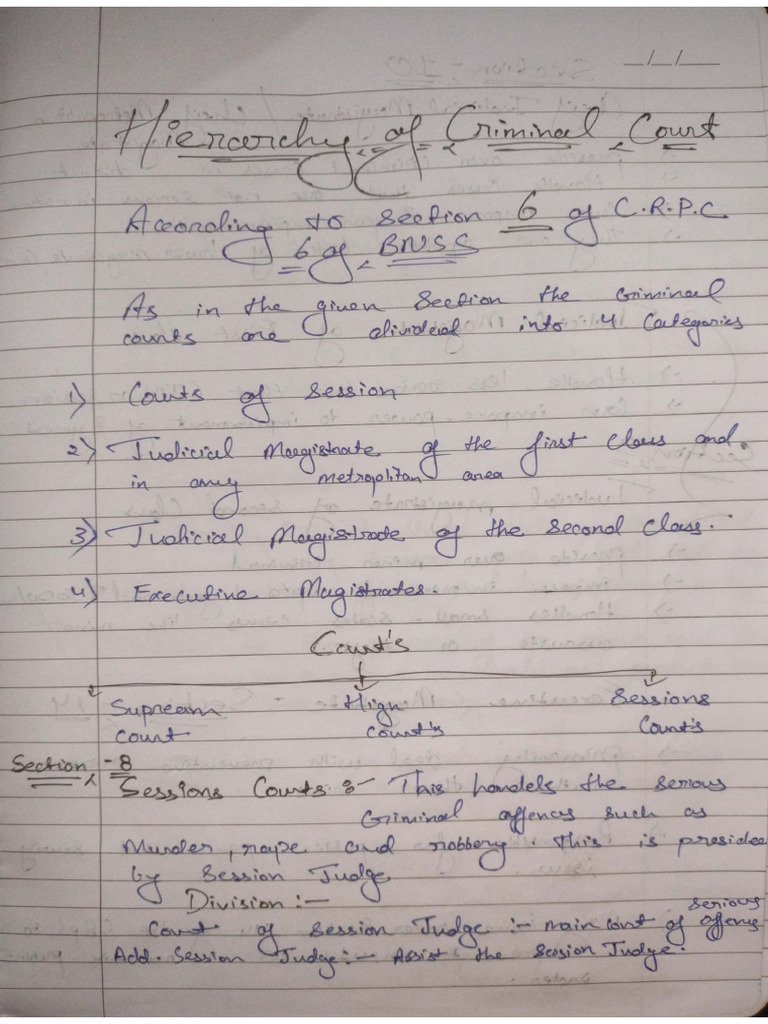 __/__/____
Hierarchy of Criminal Court
According to Section 6 of C.R.P.C
6 of BNSS
As in the given Section the Criminal
courts are divided into 4 Categories
1) Courts of Session
2) Judicial Magistrate of the first class and
in any metropolitan area
3) Judicial Magistrade of the Second Class.
4) Executive Magistrates.
Court's
Supream High Sessions
Court Court's Court's
Section - 8
Sessions Courts :- This handels the serious
Criminal offences such as
Murder, rape and robbery. this is presided
by Session Judge
Division :-
serious
Court of Session Judge :- main cont of offence
Add. Session Judge :- Assist the Session Judge.